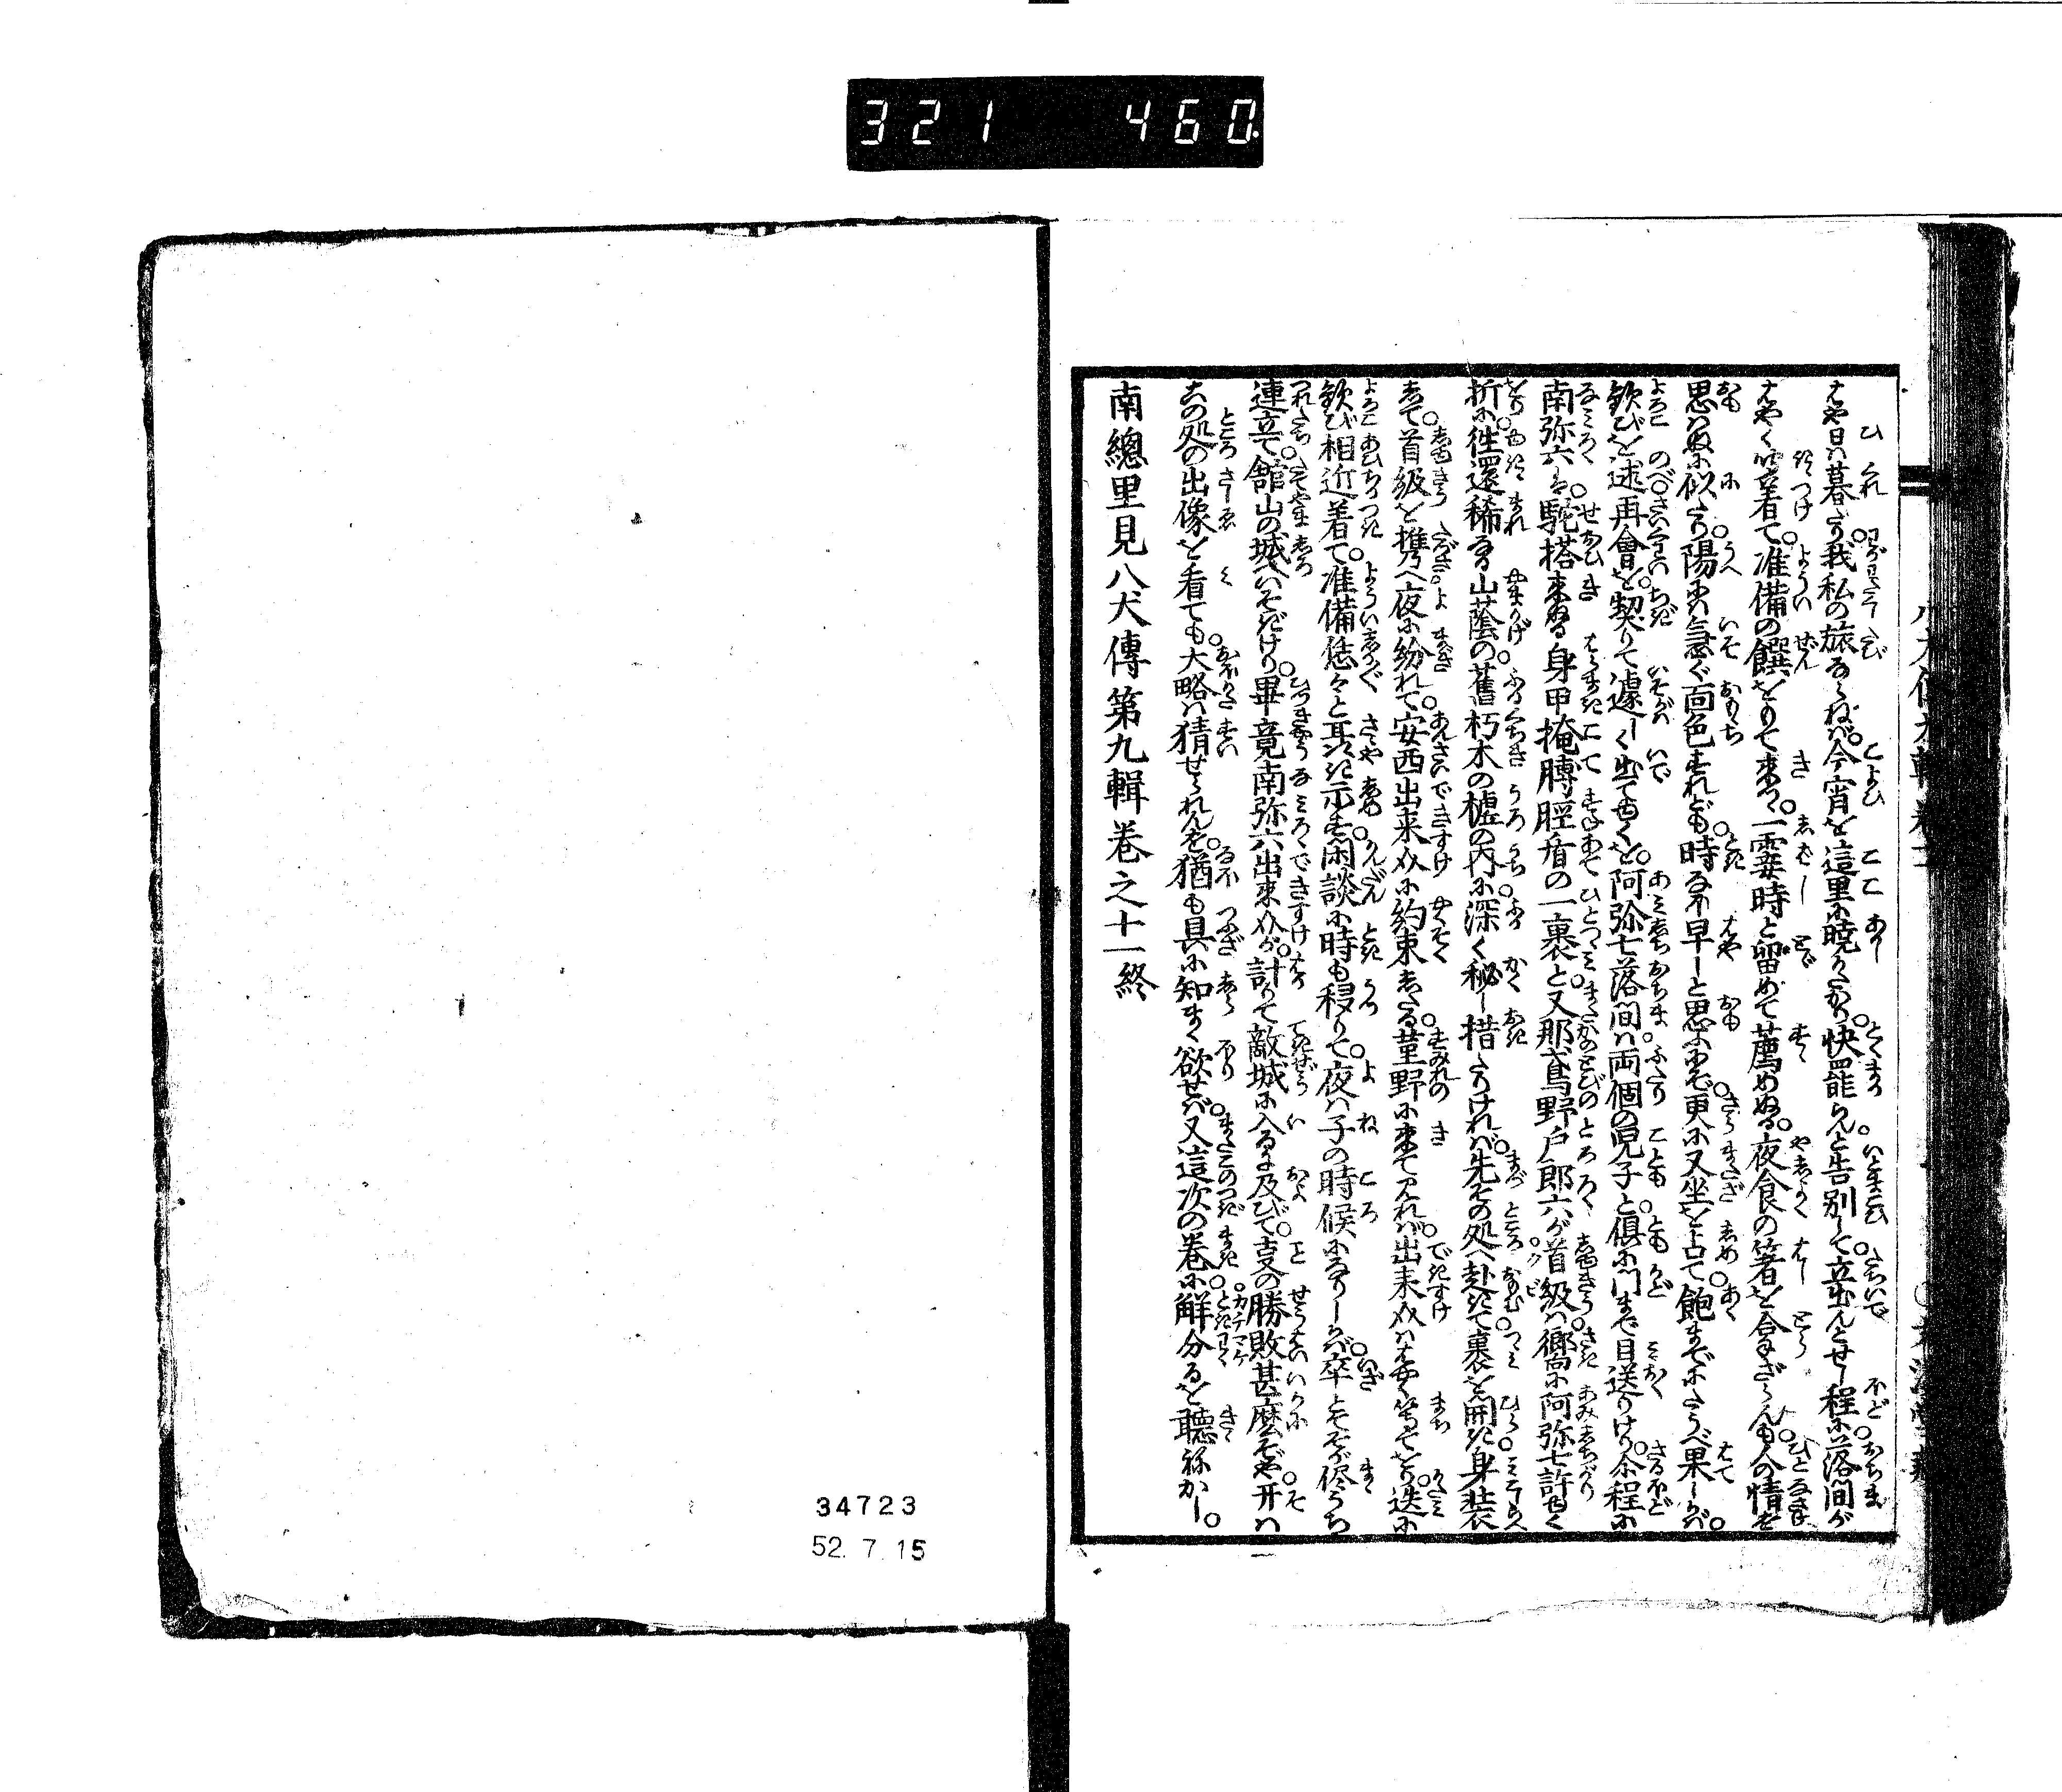 321 460
はや日は暮たり。我私の旅ならねば。今宵を這里に曉しがたかり。快罷らんと告別して。立出んとせし程に。落間が
はやく吩着て。准備の饌をもて来つ。一霎時と留めて薦めぬる。夜食の箸を合ざらんも。人の情を
思はぬに似たり。陽には急ぐ面色すれども。時なほ早しと思ふにぞ。更に又坐を占て。飽までにたうべ果しかば。
歓びを述再會を。契りて遽しく出てゆくを。阿弥七落間は両個の児子と。倶に門まで目送りけり。尓程に
南弥六は。駝搭来ぬる身甲掩膊脛盾の一裹と。又那鳶野戸郎六が首級は。嚮に阿弥七許ゆく
折に。徃還稀なる山蔭の。舊朽木の樝の内に。深く秘し措たりければ。先その処へ赴きて。裹を開き身装
して。首級を携へ夜に紛れて。安西出来介に約束したる。菫野に来て見れば。出来介ははやく等てをり。迭に
歓び相近着て。准備恁々と耳語き示す。閑談に時も移りて。夜は子の時候になりしかば。卒とてそが侭うち
連立て。館山の城へいそぎけり。畢竟南弥六出来介が。計りて敵城に入るに及びて。支の勝敗甚麼ぞや。开は
この処の出像を看ても。大略は猜せられんを。猶も具に知まく欲せば。又這次の巻に。解分るを聴ねかし。
南總里見八犬傳第九輯巻之十一終
34723
52. 7. 15